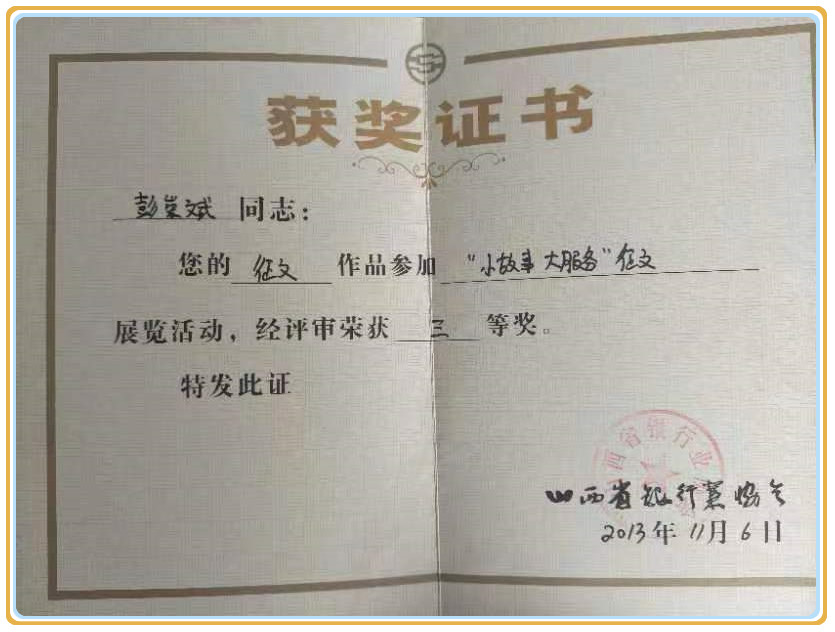 获奖证书
彭崇斌 同志：
您的 征文 作品参加 “小故事 大服务”征文
展览活动，经评审荣获 三 等奖。
特发此证
西省银行业
山西省银行业协会
2013年11月6日